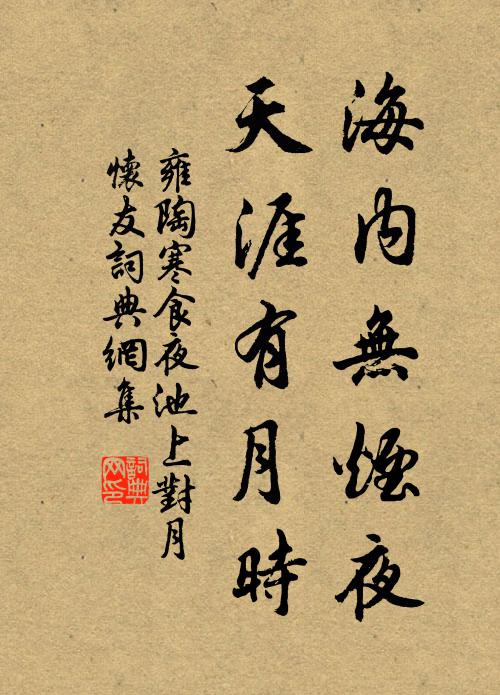 海内無煙夜
天涯有月時
雍陶寒食夜池上對月
懷友詞典網集
詞典
网印